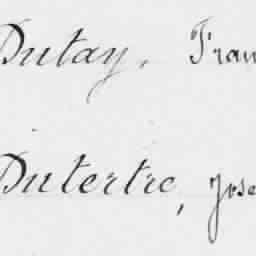 Dutay, Fran
Dutertre, Jose